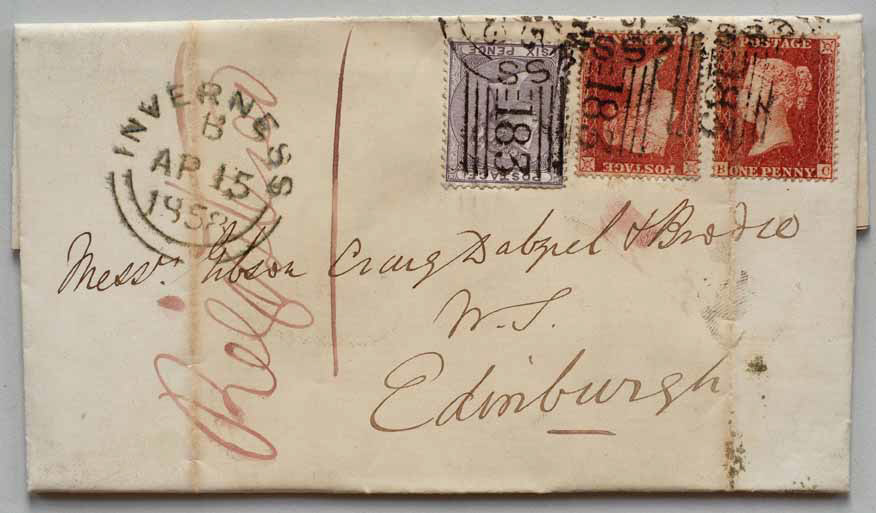 INVERNESS
B
AP 15
1858
SIX PENCE
POSTAGE
183
POSTAGE
183
POSTAGE
B ONE PENNY C
183
Messrs. Gibson Craig Dalziel & Brodie
W.S.
Edinburgh